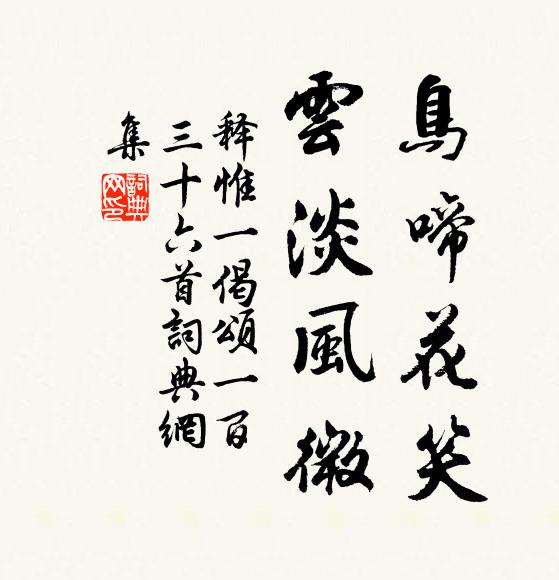 鳥啼花笑
雲淡風微
释惟一偈頌一百
三十六首詞典網
集
詞典
网印